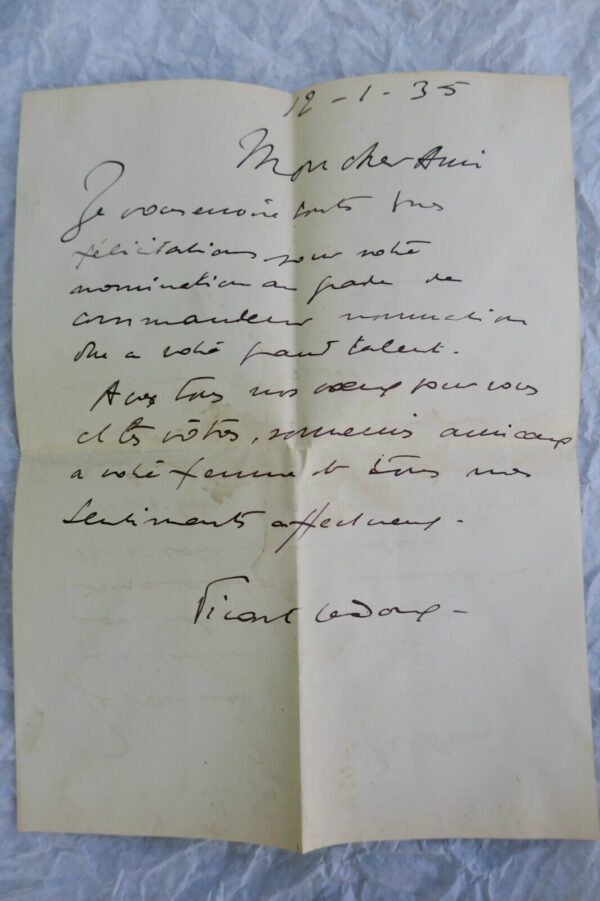 12-1-35
Mon cher Ami
Je vous envoie toutes mes
félicitations pour votre
nomination au grade de
commandeur nomination
due a votre grand talent.
Avec tous nos vœux pour vous
et les vôtres, souvenirs amicaux
a votre femme et tous nos
sentiments affectueux.
Picart Ledoux -